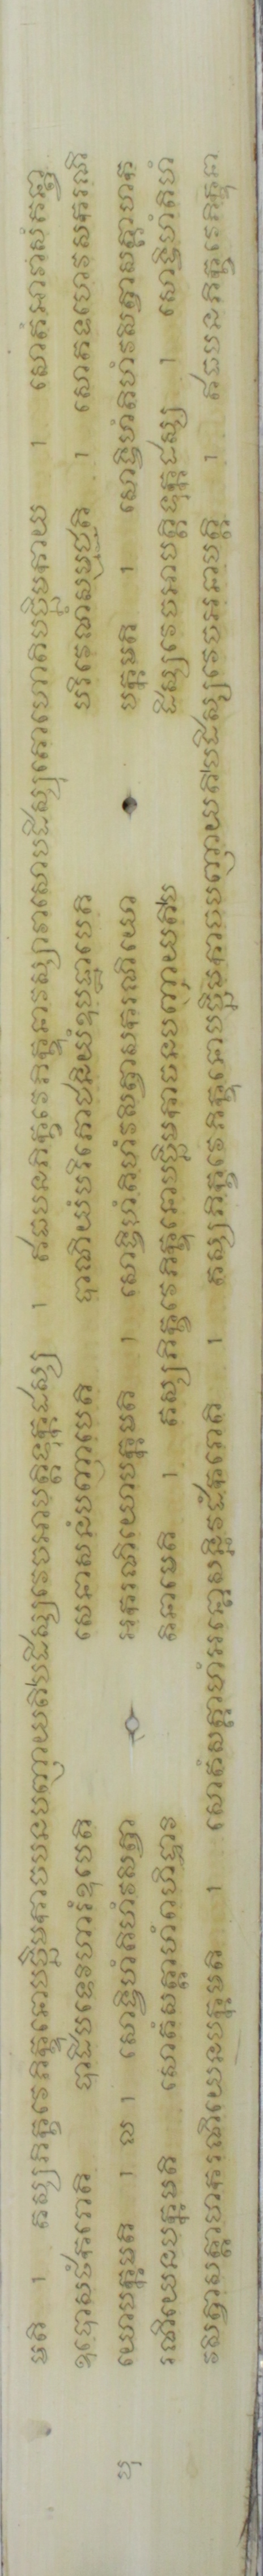 មតិ ។ តស្សភិក្ខវេភិក្ខុនោបច្ឆិមកាចបនបញ្ញាយតិបដិស្សវេចអាបត្តិទុក្កដស្ស ។ ឥធបនភិក្ខវេភិក្ខុនាវស្សាវាសោបដិស្សុតោហោតិបច្ឆិមកាយ ។ សោតំអាវាសំគន្ត្វា
ឧបោសថំករោតិ បាដិបទេវិហារំឧបេតិ សេនាសនំបញ្ញាបេតិ បាណិយំបរិភោជនិយំឧបដ្ឋាបេតិ បរិវេណំសម្មជ្ជតិ ។ សោតទហេវសករណិ
បុ យោបក្កមតិ ។ ល ។ សោទ្វិហំតិហំវសិត្វា អករណិយោបក្កមតិ ។ សោទ្វិហំតិហំវសិត្វាសករណិយោ បក្កមតិ ។ សោទ្វិហំតិហំវសិត្វាសត្តាហក
រណិយេនបក្កមតិ សោតំសត្តាហំពហិទ្ធាវ តិនាមេតិ ។ តស្សភិក្ខវេភិក្ខុនោបច្ឆិមកាចនបញ្ញាយតិប ដិស្សវេចអាបត្តិទុក្កដស្ស ។ សោទ្វិហំតិហំ
វសិត្វាសត្តាហករណិយេនបក្កមតិ ។ សោតំសត្តាហំអន្តោសន្និវដ្តំករោតិ ។ តស្សភិក្ខវេភិក្ខុនោបច្ឆិមកាចបញ្ញាយតិបដិស្សវេចអនាបត្តិ ។ ឥធបនភិក្ខវេភិក្ខុនា